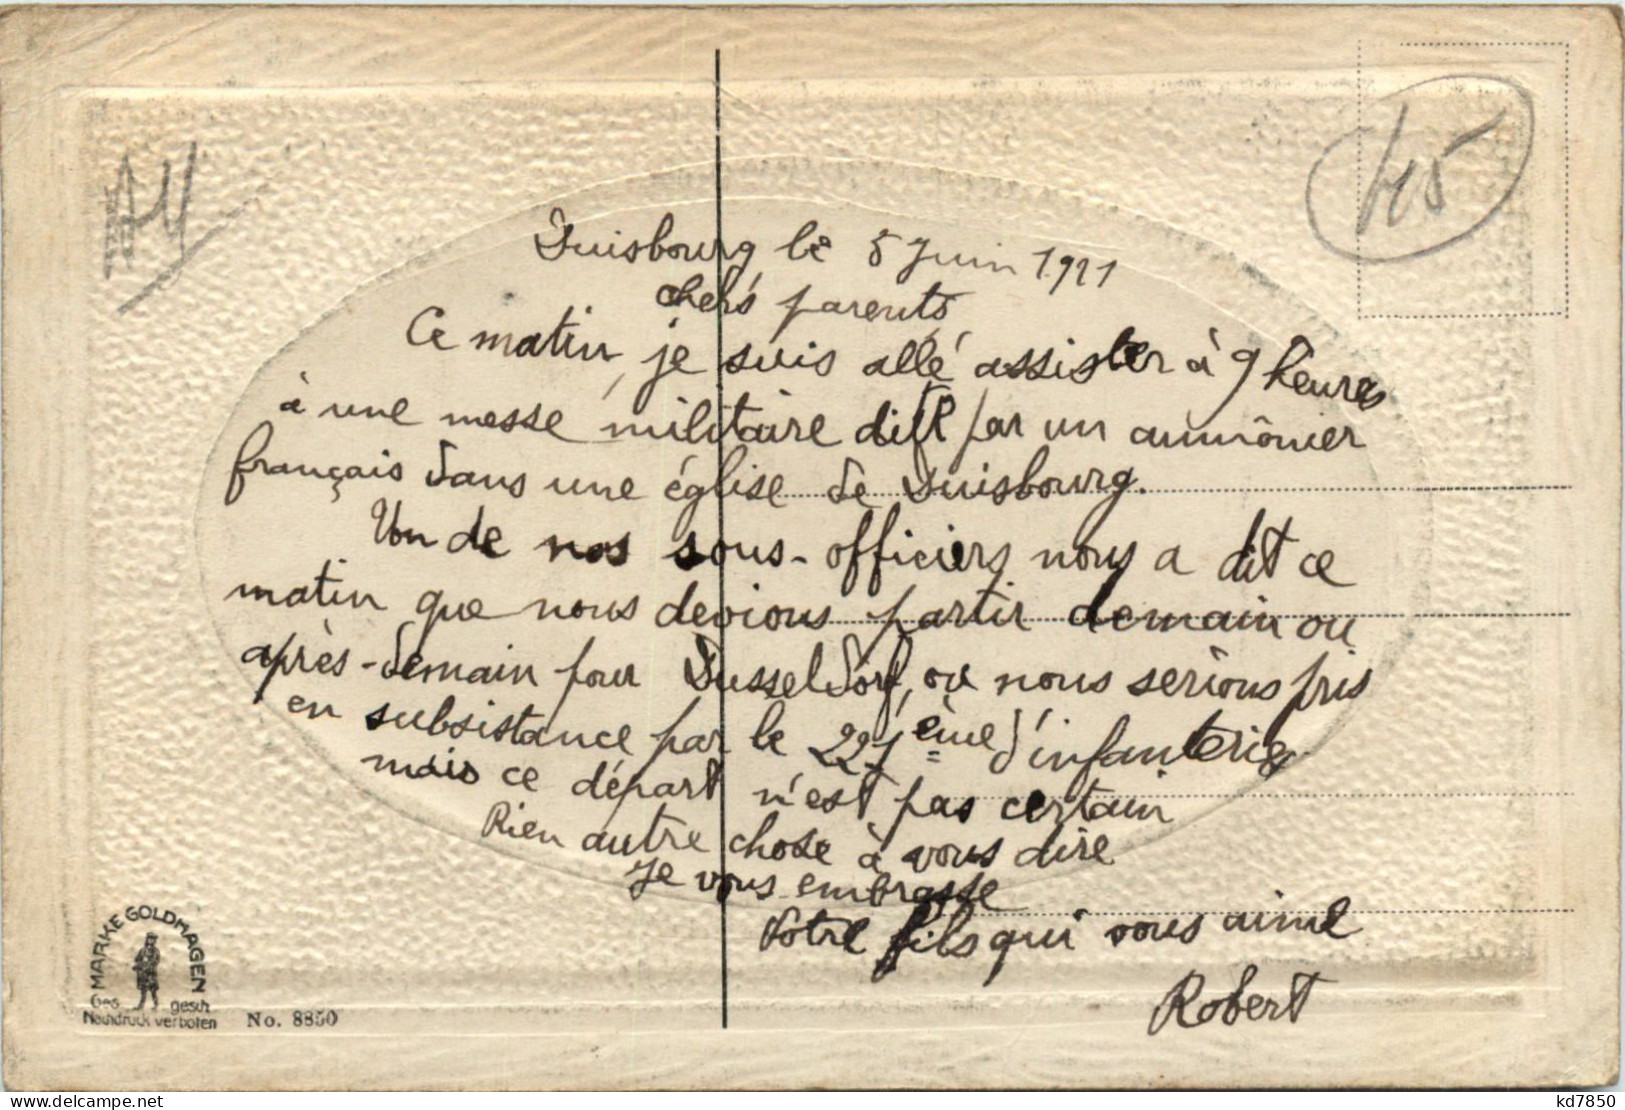 45
Duisbourg le 5 Juin 1921
chers parents
Ce matin, je suis allé assister à 9 heures
à une messe militaire dite par un aumônier
français dans une église de Duisbourg.
Un de nos sous-officiers nous a dit ce
matin que nous devions partir demain ou
après-demain pour Dusseldorf, ou nous serions pris
en subsistance par le 221ème d'infanterie
mais ce départ n'est pas certain
Rien autre chose à vous dire
Je vous embrasse
Votre fils qui vous aime
Robert
MARKE GOLDHAGEN
Ges. gesch.
Nachdruck verboten
No. 8850
kd7850